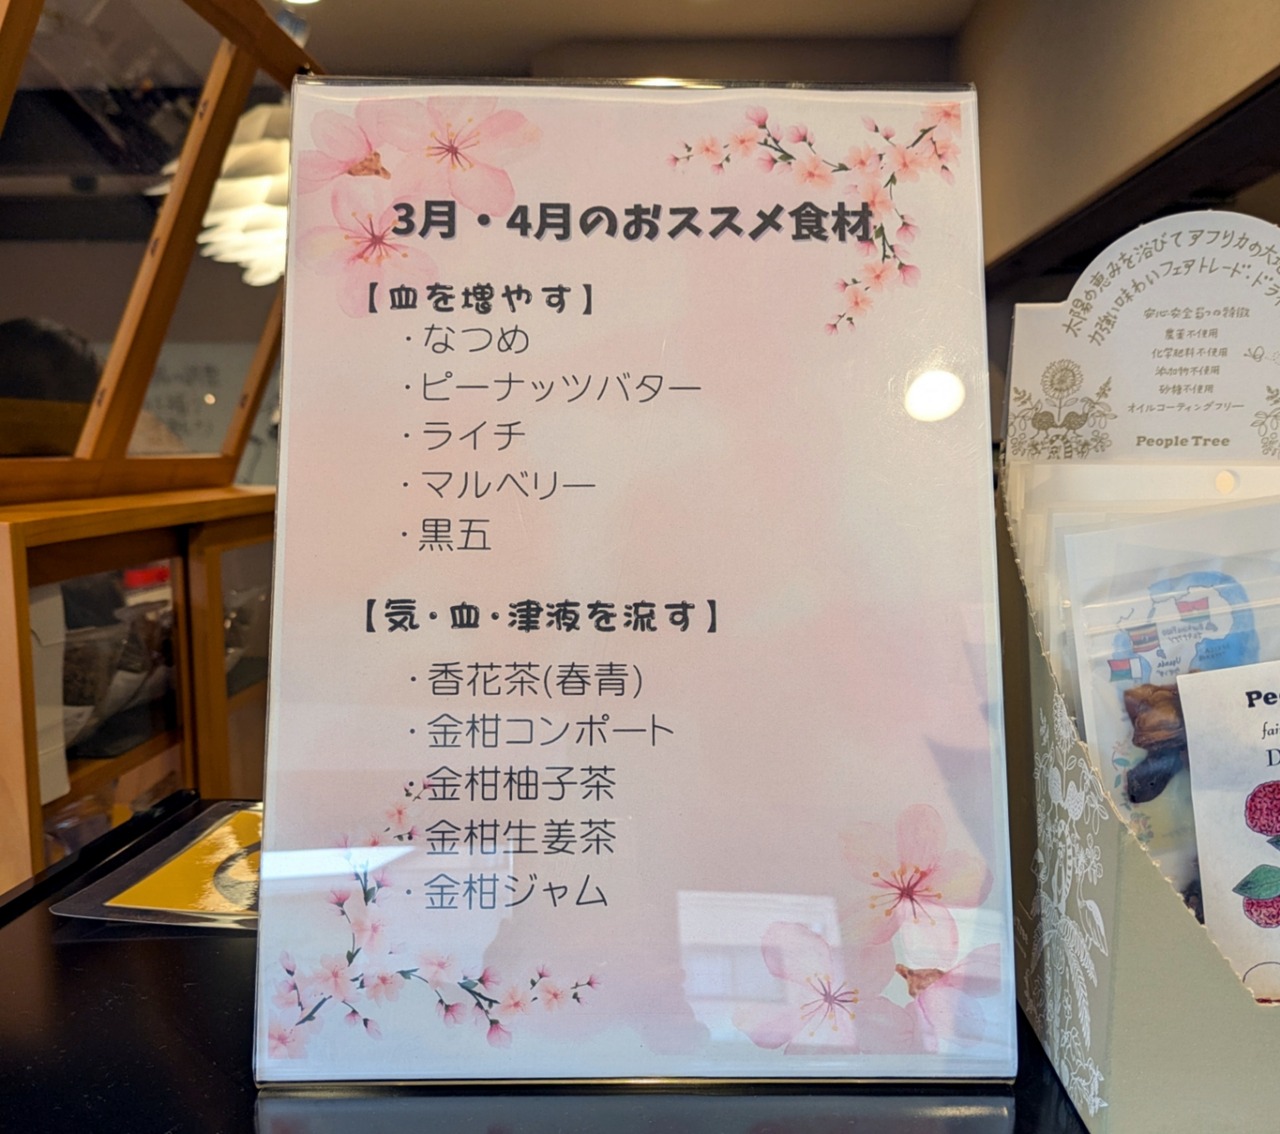 3月・4月のおススメ食材
【血を増やす】
・なつめ
・ピーナッツバター
・ライチ
・マルベリー
・黒五
【気・血・津液を流す】
・香花茶(春青)
・金柑コンポート
・金柑柚子茶
・金柑生姜茶
・金柑ジャム
太陽の恵みを浴びてアフリカの大
力強い味わいフェアトレード・ドラ
安心安全5つの特徴
農薬不使用
化学肥料不使用
添加物不使用
砂糖不使用
オイルコーティングフリー
People Tree
Uganda
Pe
fai
D